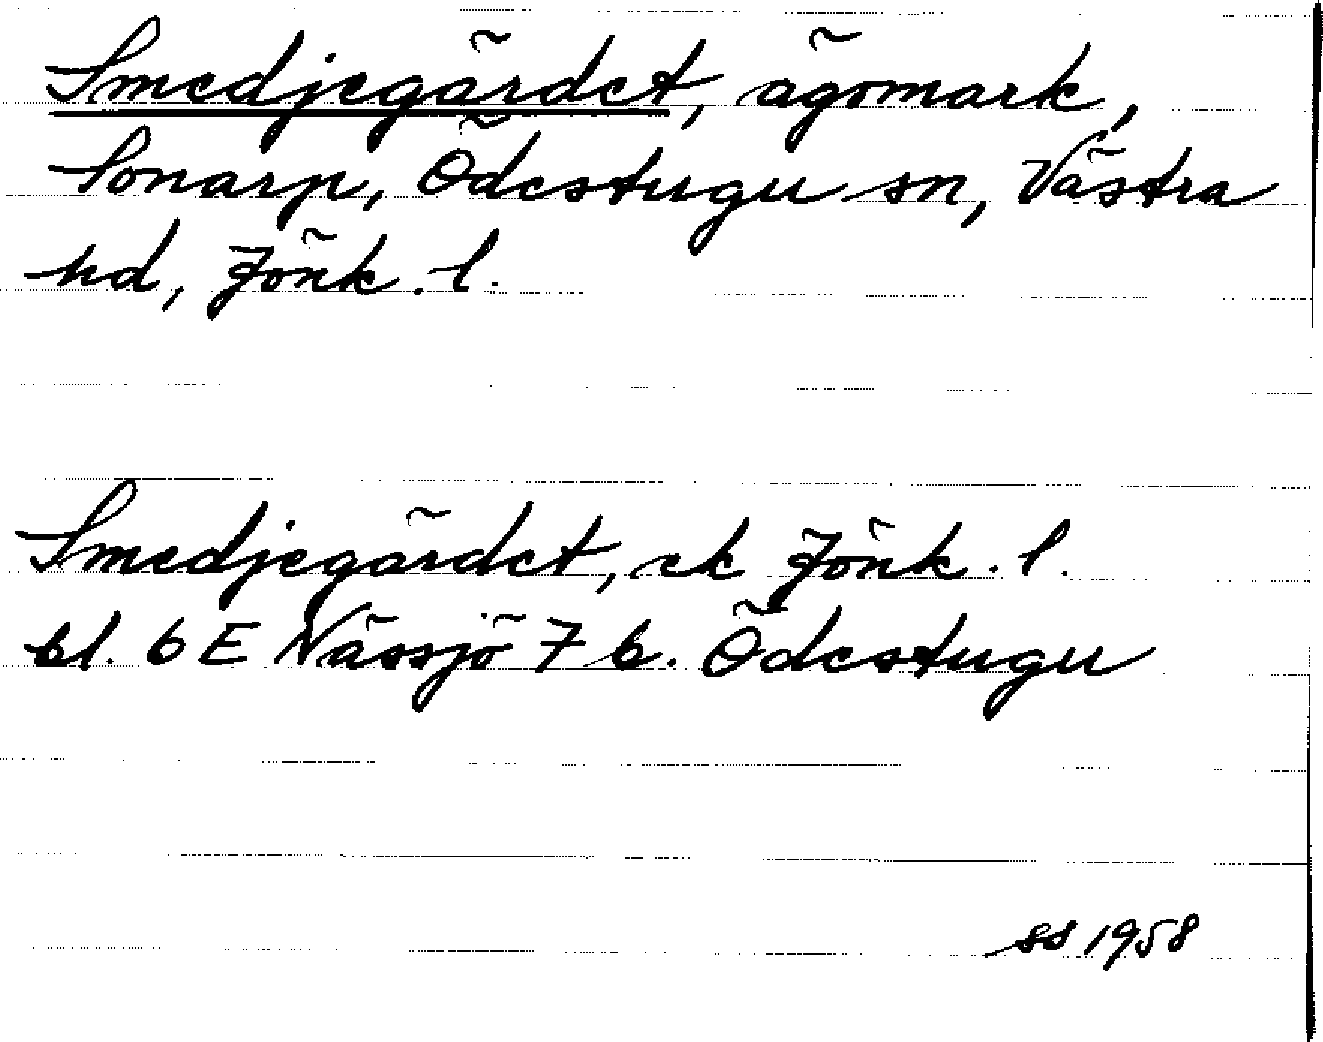 Smedjegärdet, ägomark,
Sonarp, Ödestugu sn, Västra
hd, Jönk. l.
Smedjegärdet, ek Jönk. l.
bl. 6 E Nässjö 7 b. Ödestugu
ss 1958